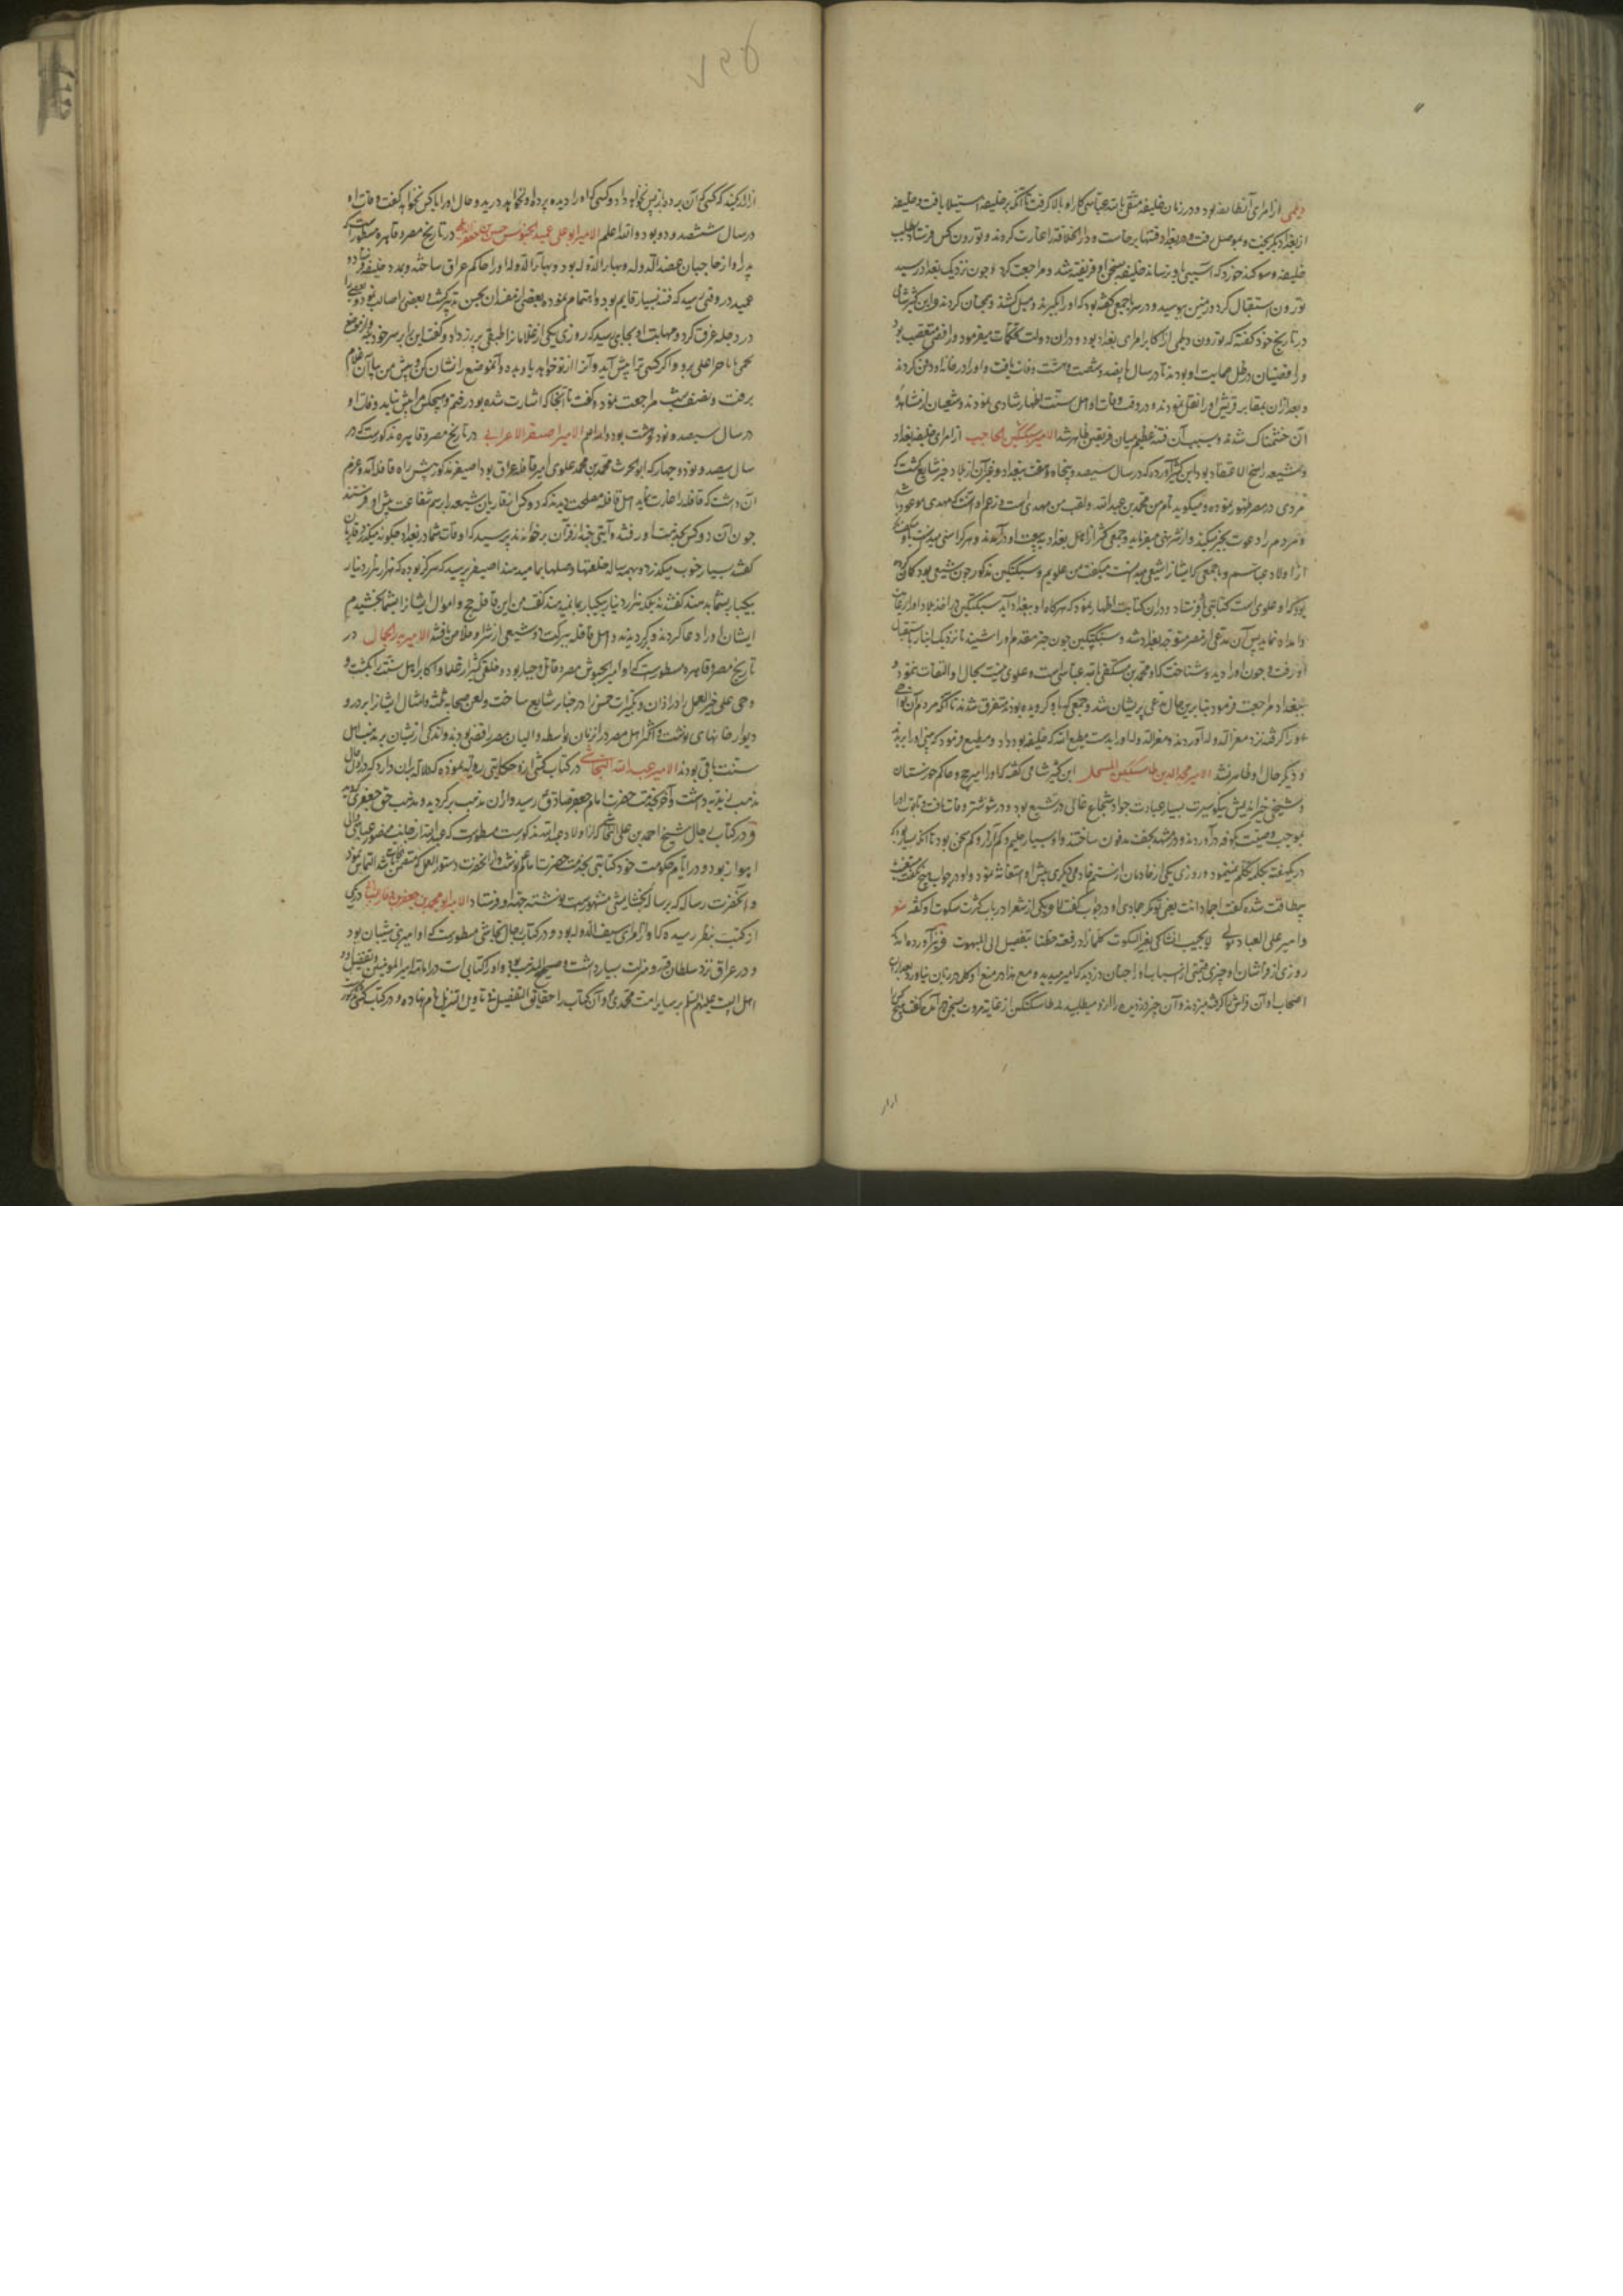 دیلمی از امرای آنطایفه بود و در زمان خلیفه متقی بالله عباسی کار او بالا گرفت تا آنکه بر خلیفه استیلا یافت و خلیفه
از بغداد بگریخت و بموصل رفت و در بغداد فتنها برخاست و دار الخلافه را غارت کردند و توزون کس فرستاد بطلب
خلیفه و سوکند خورد که آسیبی باو نرساند خلیفه بسخن او فریفته شد و مراجعت کرد و چون نزدیک بغداد رسید
توزون استقبال کرد و زمین بوسید و در سر با جمعی گفته بود که او را بگیرند و میل کشند و همچنان کردند و ابن کثیر شامی
در تاریخ خود گفته که توزون دیلمی از اکابر امرای بغداد بود و در آن دولت میفرمود و رافضی متعصب بود
و رافضیان در ظل حمایت او بودند تا در سال پانصد و شصت و هشت وفات یافت و او را در خانه او دفن کردند
و بعد از آن بمقابر قریش او را نقل نمودند و در وقت وفات او اهل سنت اظهار شادی نمودند و شیعیان از مشاهده
آن خشمناک شدند و بسبب آن فتنه عظیم میان فریقین ظاهر شد الامیر سبکتکین الحاجب از امرای خلیفه بغداد
و شیعه راسخ الاعتقاد بود ابن کثیر آورده که در سال سیصد و پنجاه و هفت ببغداد و غیر آن از بلاد خبر شایع گشت که
مردی در مصر ظهور نموده و میگوید نام من محمد بن عبدالله و لقب من مهدی است و زعم او آنست که مهدی موعود
و مردم را دعوت بخیر میکند و از شر نهی میفرماید و جمعی کثیر از اهل بغداد ببیعت او درآمدند و هر کرا سنی میدانست با او میگفت
از اولاد عباسم و با جمعی که ایشانرا شیعی میدانست میگفت من علویم و سبکتکین مذکور چون شیعی بود گمان
بود که او علوی است کتابتی باو فرستاد و در آن کتابت اظهار نمود که هرگاه او ببغداد آید سبکتکین در اخذ بلاد او را رعایت
و امداد نماید پس آن مدعی از مصر متوجه بغداد شد و سبکتکین چون خبر مقدم او را شنید تا نزدیک انبار باستقبال
او رفت و چون او را دید شناخت که او محمد بن مستکفی بالله عباسی است و علوی نیست بحال او التفات ننمود و
ببغداد مراجعت فرمود بنابرین حال مدعی پریشان شد و جمعی که باو گرویده بودند متفرق شدند تا آنکه مردم آن نواحی
او را گرفته نزد معز الدوله آوردند و معز الدوله او را بدست مطیع الله که خلیفه بود داد و مطیع فرمود که بینی او را بریدند
و دیگر حال او ظاهر نشد الامیر مجد الدین طاشتکین ابن کثیر شامی گفته که او را امیر حج و حاکم خوزستان
و شیخی خیراندیش نیکو سیرت بسیار عبادت جواد شجاع غالی در تشیع بود و در شوشتر وفات یافت و تابوت او را
بموجب وصیت بکوفه درآوردند و در مشهد نجف مدفون ساختند و او بسیار حلیم و کم آزار و کم سخن بود تا آنکه
در یک هفته یک کلمه تکلم نمینمود و روزی یکی از خادمان از ستم خادمی دیگری پیش او استغاثه نمود و او در جواب هیچ نگفت
بیطاقت شده گفت اجماد انت یعنی تو مگر جمادی او در جواب گفت لا و یکی از شعرا در باب کثرت سکوت او گفته شعر
و امیر علی العباد تولی لا یجیب الشاکی بغیر السکوت کلما زاد رفعة حطنا بتفضیل الی البهموت و نیز آورده اند که
روزی از فراشان او چیزی قیمتی از اسباب او را چنان دزدید که امیر میدید و مع هذا در منع او کلمه بر زبان نیاورد بعد از آن
اصحاب او آن فراش را گرفته میزدند و آن چیز دزدیده را ازو میطلبیدند طاشتکین از غایت مروت بسخن درآمد گفت هیچ
ازار
او را بزنید که کسی که آن برد باز پس نخواهد داد و کسی که او را دیده پرده او نخواهد درید و حال او را با کس نخواهد گفت وفات او
در سال ششصد و دو بود و الله اعلم الامیر ابو علی عمید الجیوش حسن بن جعفر در تاریخ مصر و قاهره مسطور است که
پدر او از حاجبان عضد الدوله و بهاء الدوله بود و بهاء الدوله او را حاکم عراق ساخته و بمدد خلیفه فرستاد و
عمید در وقتی رسید که فتنه بسیار قایم بود و اهتمام نمود و بعضی از مفسدان
در دجله غرق کرد و مهابت او بجایی رسید که روزی یکی از غلامان را طبقی پر زر داد و گفت این را بر سر خود نه و از موضع
نجمی تا ماجرا علی برو و اگر کسی ترا پیش آید و آنرا از تو خواهد باو بده و آنموضع را نشان کن و پیش من بیا آن غلام
برفت و نصف شب مراجعت نمود و گفت تا آنجا که اشارت شده بود رفتم و هیچکس مرا پیش نیامد وفات او
در سال سیصد و نود و هشت بود و الله اعلم الامیر اصیفر الاعرابی در تاریخ مصر و قاهره مذکور است که در
سال سیصد و نود و چهار که ابو الحرث محمد بن محمد علوی امیر قافله عراق بود اصیفر مذکور پیش راه قافله آمد و عزم
آن داشت که قافله را غارت نماید اهل قافله مصلحت دیدند که دو کس از قاریان شیعه را برسم شفاعت پیش او فرستند
چون آن دو کس بخدمت او رفتند و آیتی چند از قرآن برخواندند پرسید که اوقات شما در بغداد چگونه میگذرد قاریان
گفتند بسیار خوب میگذرد و همه ساله خلعتها و صلها بما میدهند اصیفر پرسید که هرگز بوده که هزار هزار دینار
بیکبار بشما بدهند گفتند نه بلکه هزار دینار بیکبار بما نمیدهند گفت من این قافله حج و اموال ایشانرا بشما بخشیدم
ایشان او را دعا کردند و برگردیدند و اهل قافله ببرکت دو شیعی از شر او خلاص یافتند الامیر بدر الجمالی در
تاریخ مصر و قاهره مسطور است که او امیر الجیوش مصر و قاتل و جبار بود و خلقی کثیر از علما و اکابر اهل سنت را بکشت و
و حی علی خیر العمل را در اذان و تکبیرات خمس را در جنایز شایع ساخت و لعن صحابه ثلثه و امثال ایشانرا بر در و
دیوار خانهای نوشت و اکثر اهل مصر در آنزمان بواسطه والیان مصر رافضی بودند و اندکی از ایشان بر مذهب اهل
سنت باقی بودند الامیر عبدالله النجاشی در کتاب کشی ازو حکایتی روایت نموده که دلالت بر آن دارد که در اول حال
مذهب زیدیه داشت و آخر بخدمت حضرت امام جعفر صادق ع رسید و از آن مذهب برگردید و بمذهب حق جعفری گروید
و در کتاب رجال شیخ احمد بن علی النجاشی که از اولاد عبدالله مذکور است مسطور است که عبدالله از جانب منصور عباسی والی
اهواز بود و در ایام حکومت خود کتابتی بخدمت حضرت امام ع نوشت و از آنحضرت دستور العمل التماس نمود
و آنحضرت رساله که برساله نجاشی مشهور است نوشته جهة او فرستاد الامیر ابو محمد بن جعفر در یکی
از کتب بنظر رسیده که او از امرای سیف الدوله بود و در کتاب رجال نجاشی مسطور است که او امیر بنی شیبان بود
و در عراق نزد سلطان قدر و منزلت بسیار داشت و صحیح المذهب بود و او را کتابی است در امامت امیر المومنین و تفضیل او و
اهل البیت علیهم السلم بر سایر امت محمدی و آن کتاب را حقایق التفضیل فی تاویل التنزیل نام نهاده و در کتاب کشی مذکور